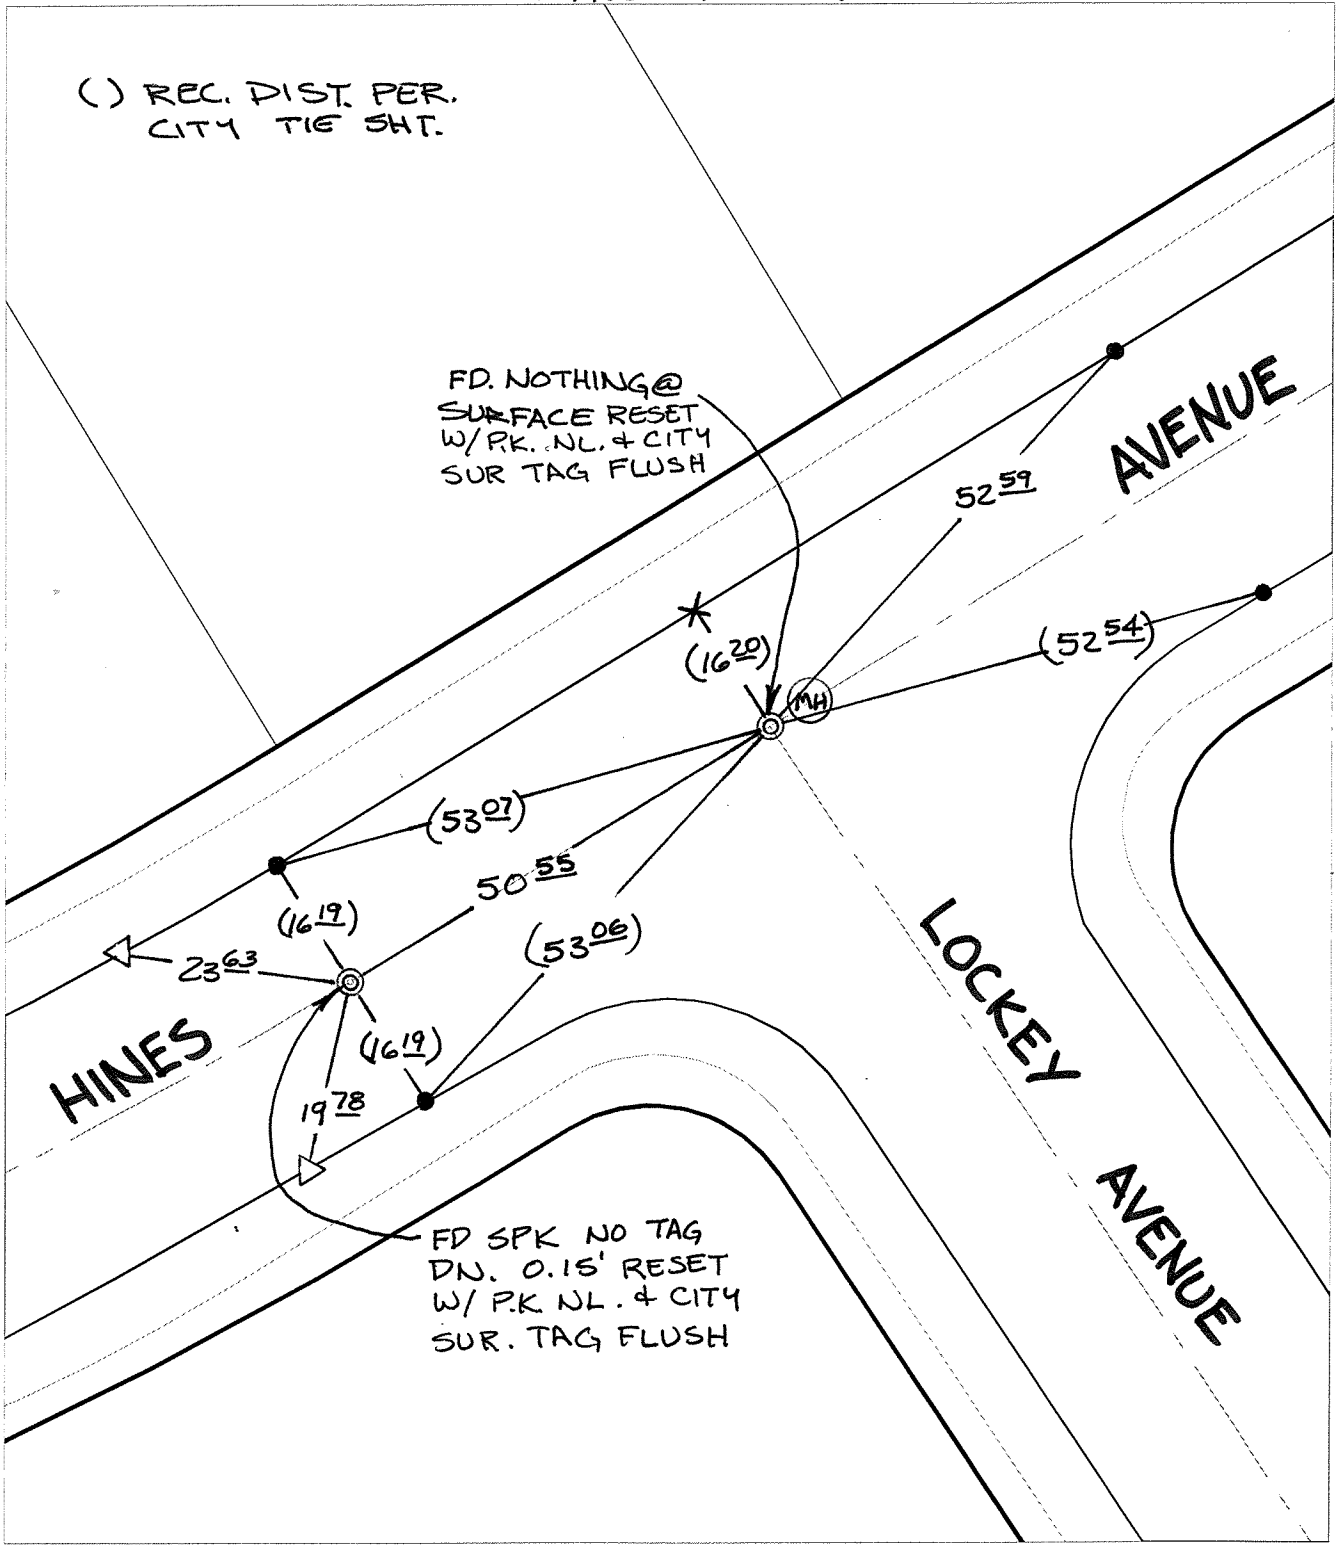 () REC. DIST. PER.
CITY TIE SHT.
FD. NOTHING @
SURFACE RESET
W/ P.K. NL. & CITY
SUR TAG FLUSH
AVENUE
52 59
(52 54)
(16 20)
MH
(53 07)
50 55
(16 19)
(53 06)
23 63
HINES
(16 19)
19 78
LOCKEY
AVENUE
FD SPK NO TAG
DN. 0.15' RESET
W/ P.K NL. & CITY
SUR. TAG FLUSH